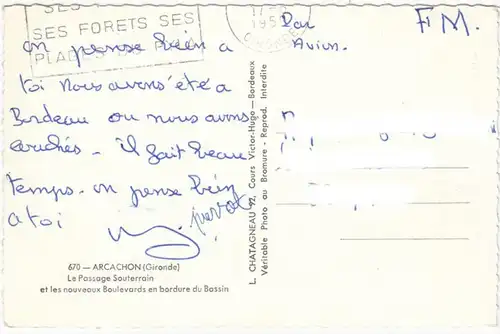 SES
SES FORETS SES
PLAGES
17-
195
GIRONDE
Par
Avion.
F.M.
on pense bien a
toi nous avons été a
Bordeau ou nous avons
couchés - il fait beau
temps - on pense bien
a toi
pierrot
670 — ARCACHON (Gironde)
Le Passage Souterrain
et les nouveaux Boulevards en bordure du Bassin
L. CHATAGNEAU 92, Cours Victor-Hugo — Bordeaux
Véritable Photo au Bromure - Reprod. Interdite